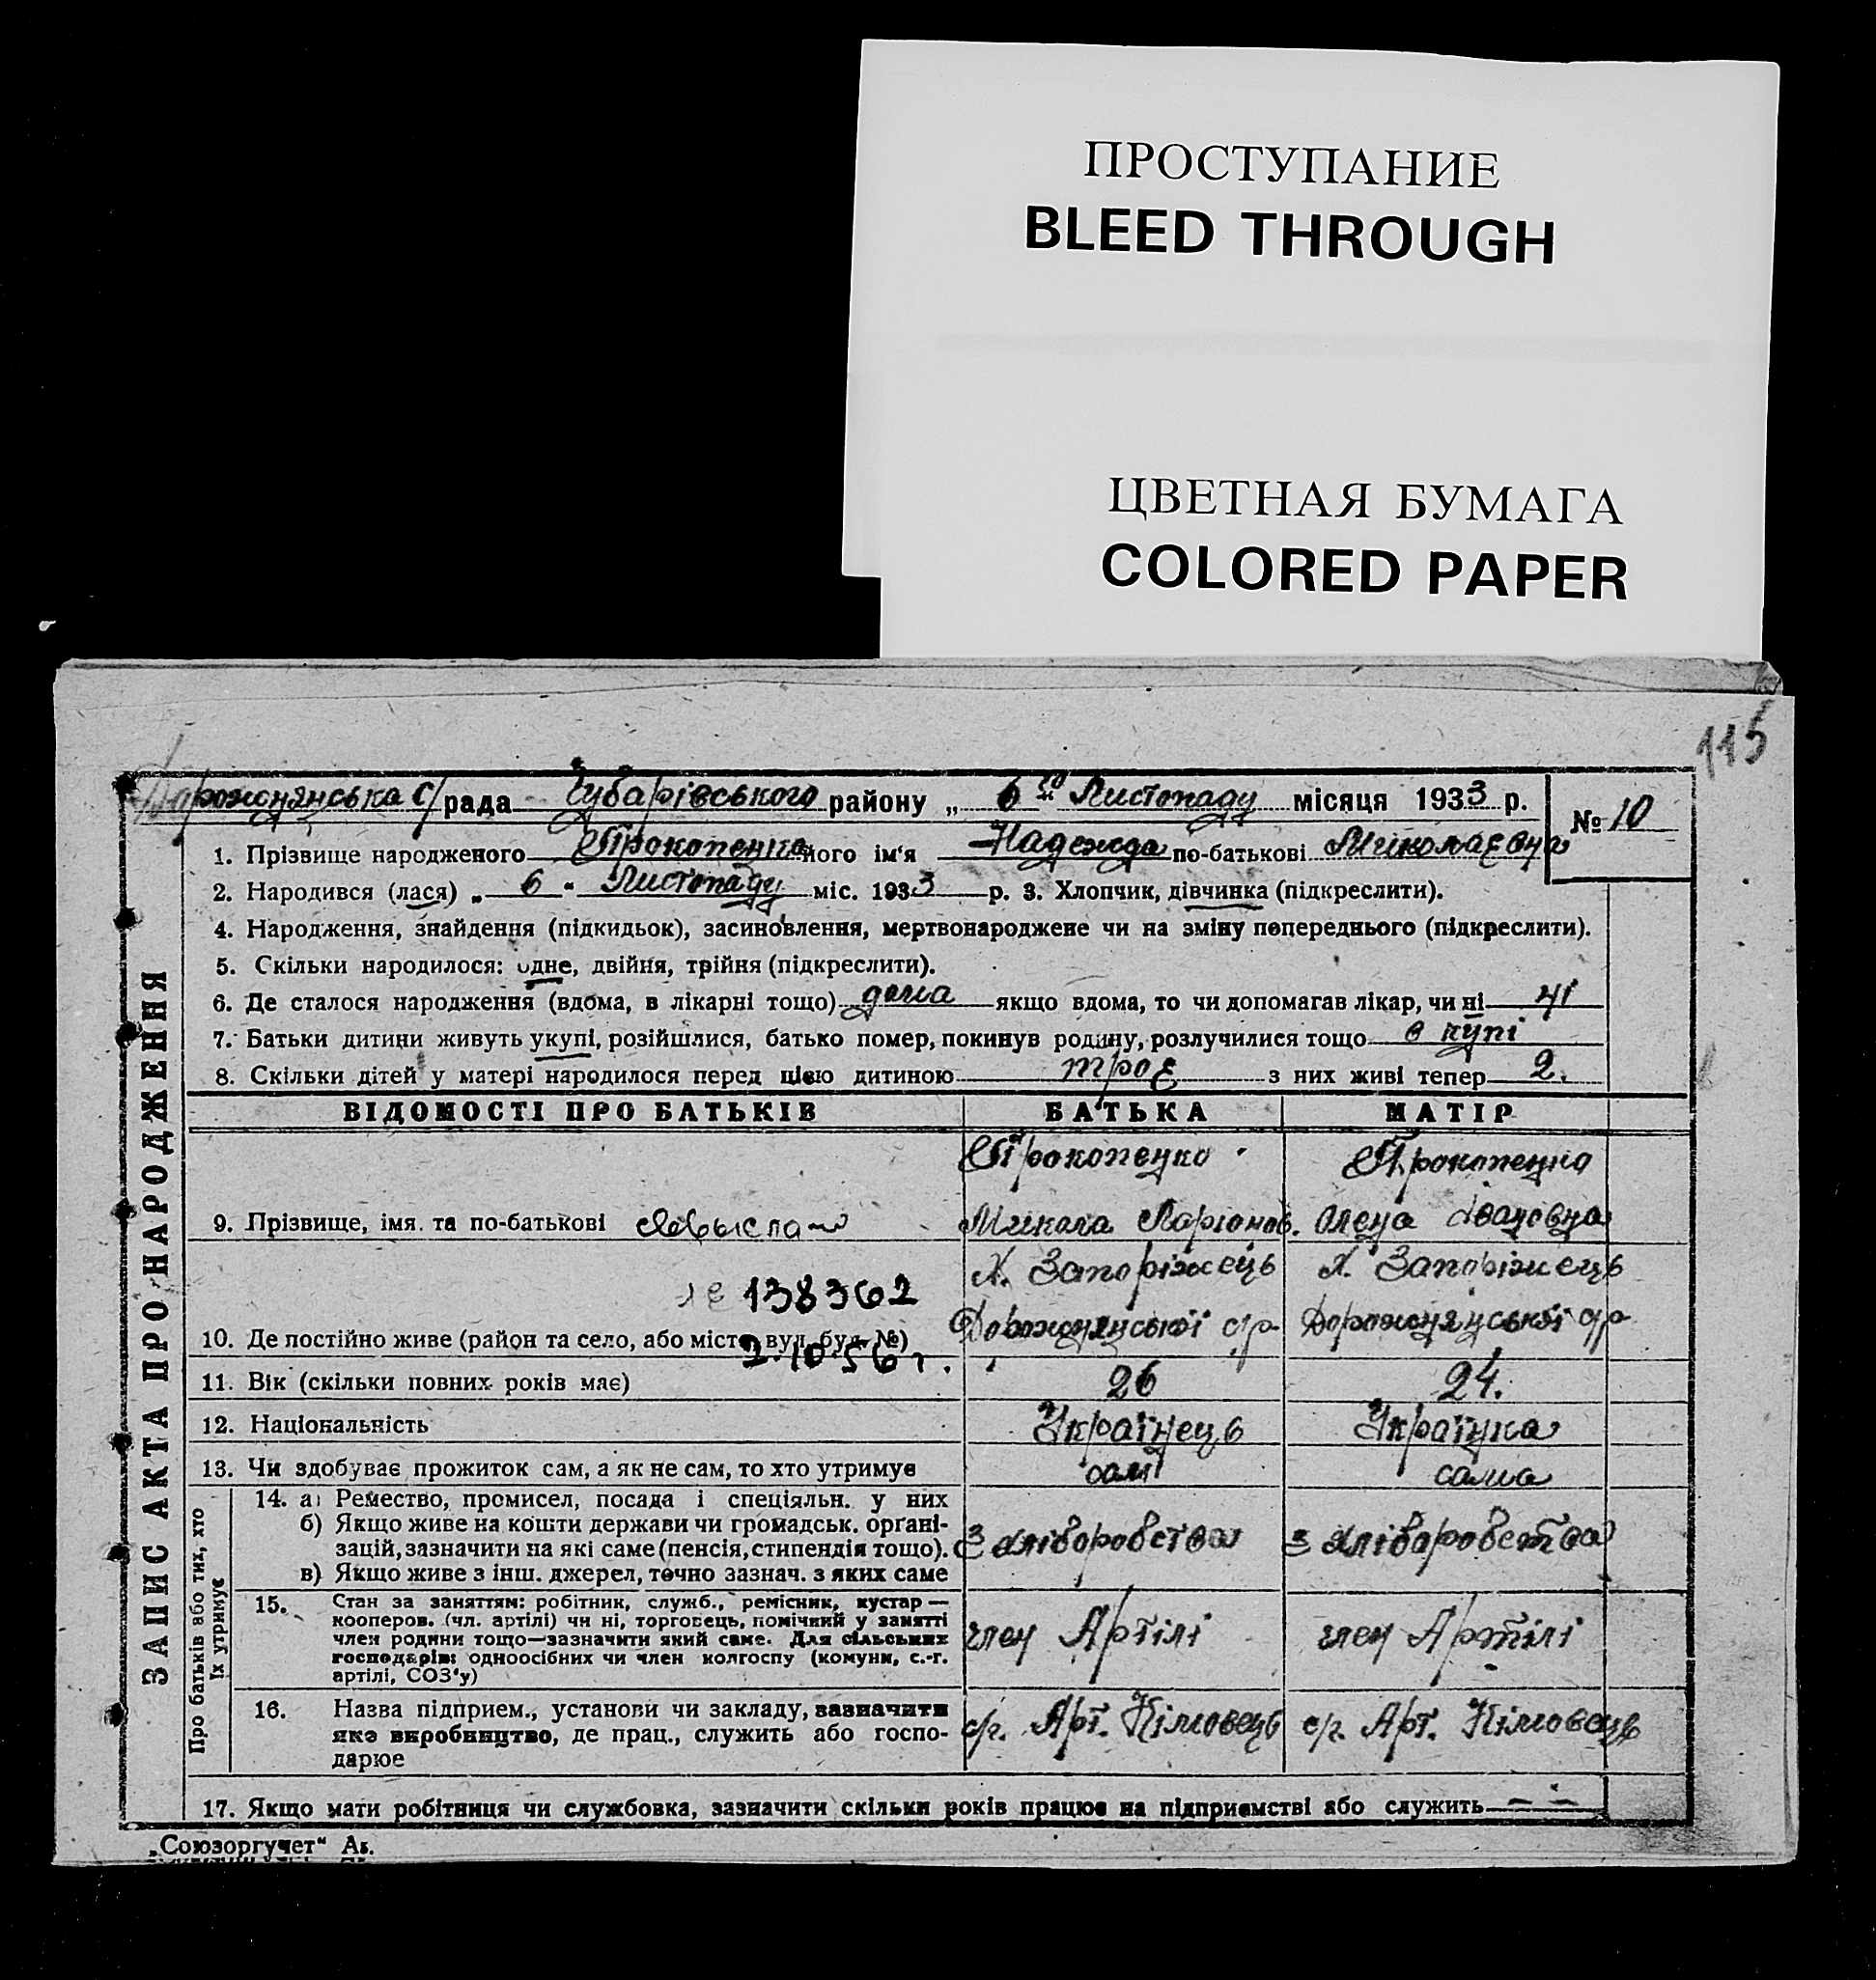 ПРОСТУПАНИЕ
BLEED THROUGH
ЦВЕТНАЯ БУМАГА
COLORED PAPER
115
Дорожнянська с/рада Чубарівського району „ 6 го Листопаду місяця 1933 р.
№ 10
1. Прізвище народженого Прокопенко його ім‘я Надежда по-батькові Миколаєвна
2. Народився (лася) „ 6 “ Листопаду міс. 1933 р. 3. Хлопчик, дівчинка (підкреслити).
4. Народження, знайдення (підкидьок), засиновлення, мертвонароджене чи на зміну попереднього (підкреслити).
5. Скільки народилося: одне, двійня, трійня (підкреслити).
6. Де сталося народження (вдома, в лікарні тощо) дома якщо вдома, то чи допомагав лікар, чи ні ні
7. Батьки дитини живуть укупі, розійшлися, батько помер, покинув родину, розлучилися тощо в купі
8. Скільки дітей у матері народилося перед цією дитиною троє з них живі тепер 2.
ЗАПИС АКТА ПРО НАРОДЖЕННЯ
ВІДОМОСТІ ПРО БАТЬКІВ БАТЬКА МАТІР
Прокопенко Прокопенко
9. Прізвище, імя. та по-батькові Микола Ларіонов. Олена Івановна
Х. Запоріжець Х. Запоріжець
138362
10. Де постійно живе (район та село, або місто, вул., буд. №) Дорожнянської с/р Дорожнянської с/р
2.10.56 г.
11. Вік (скільки повних років має) 26 24.
12. Національність Українець Українка
13. Чи здобуває прожиток сам, а як не сам, то хто утримує сам сама
Про батьків або тих, хто їх утримує
14. а) Ремество, промисел, посада і спеціяльн. у них
б) Якщо живе на кошти держави чи громадськ. орґані-
зацій, зазначити на які саме (пенсія, стипендія тощо). З хліборобства З хліборобства
в) Якщо живе з інш. джерел, точно зазнач. з яких саме
15. Стан за заняттям: робітник, служб., ремісник, кустар —
кооперов. (чл. артілі) чи ні, торговець, помічний у занятті
член родини тощо—зазначити який саме. Для сільських
господарів: одноосібних чи член колгоспу (комуни, с.-г.
артілі, СОЗ‘у)
член Артілі член Артілі
16. Назва підприєм., установи чи закладу, зазначити
яке виробництво, де прац., служить або госпо-
дарює
с/г. Арт. Кімовець с/г. Арт. Кімовець
17. Якщо мати робітниця чи службовка, зазначити скільки років працює на підприємстві або служить — —
„Союзоргучет“